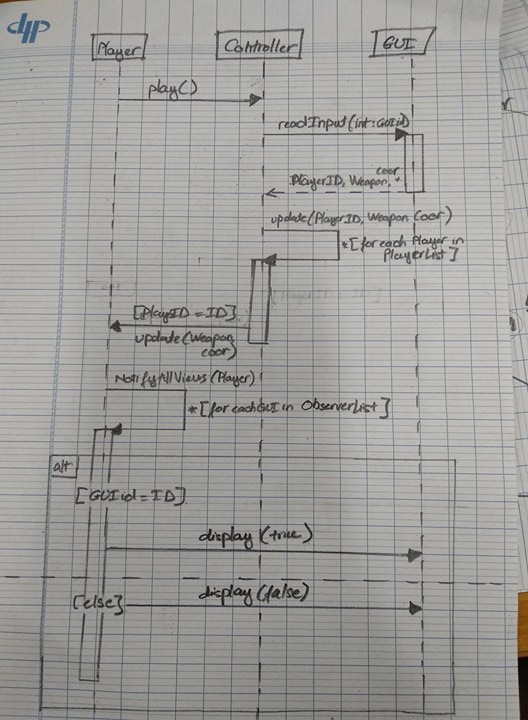 Player
Controller
GUI
play()
readInput(int:GUIid)
PlayerID, Weapon, coor
update(PlayerID, Weapon, Coor)
*[for each Player in
PlayerList]
[PlayerID = ID]
update(Weapon,
coor)
NotifyAllViews(Player)
*[for each GUI in ObserverList]
alt
[GUIid = ID]
display(true)
[else]
display(false)